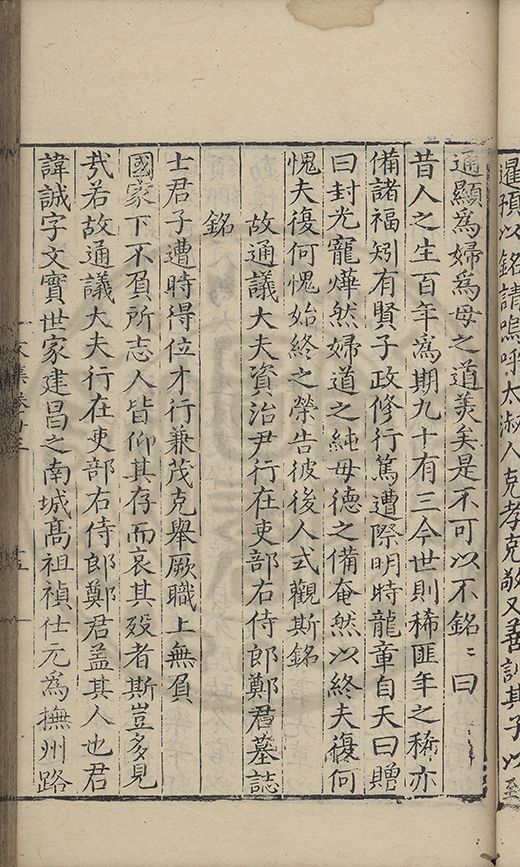 暹預以銘請嗚呼太淑人克孝克敬又善訓其子以至
通顯為婦為母之道羙矣是不可以不銘〻曰
昔人之生百年為期九十有三今世則稀匪年之稀亦
備諸福矧有賢子政修行篤遭際明時龍章自天曰贈
曰封光寵燁然婦道之純母德之備奄然以終夫復何
愧夫復何愧始終之榮告彼後人式觀斯銘
故通議大夫資治尹行在吏部右侍郎鄭君墓誌
銘
士君子遭時得位才行兼茂克舉厥職上無負
國家下不負所志人皆仰其存而哀其歿者斯豈多見
㦲若故通議大夫行在吏部右侍郎鄭君葢其人也君
諱誠字文實世家建昌之南城髙祖禎仕元為撫州路
文集卷